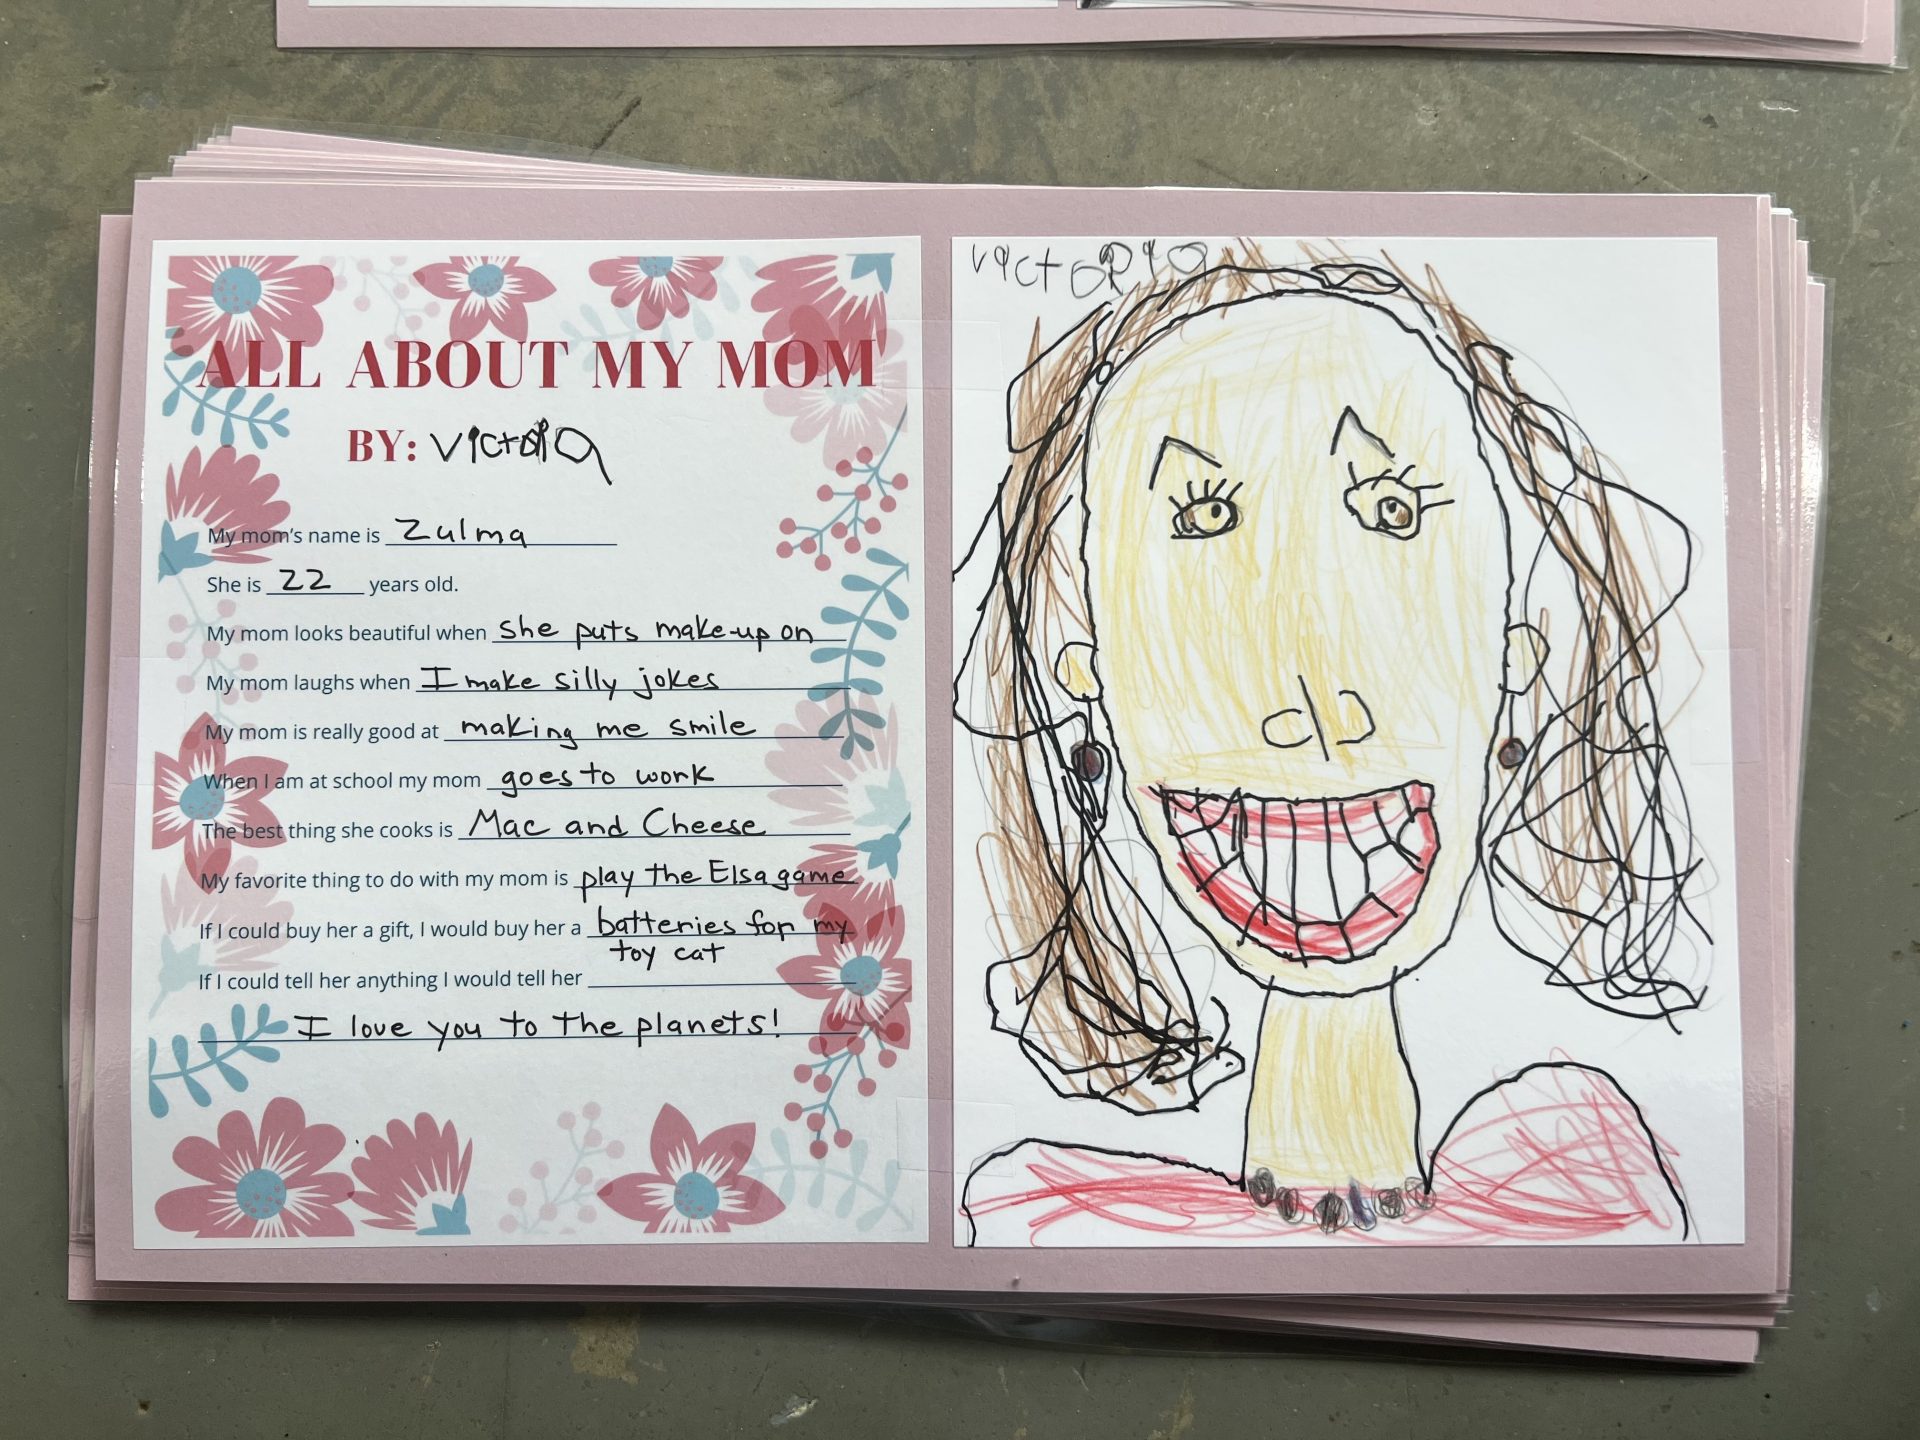 ALL ABOUT MY MOM
BY: Victoria
My mom's name is Zulma
She is 22 years old.
My mom looks beautiful when she puts make-up on
My mom laughs when I make silly jokes
My mom is really good at making me smile
When I am at school my mom goes to work
The best thing she cooks is Mac and Cheese
My favorite thing to do with my mom is play the Elsa game
If I could buy her a gift, I would buy her a batteries for my
toy cat
If I could tell her anything I would tell her
I love you to the planets!
Victoria